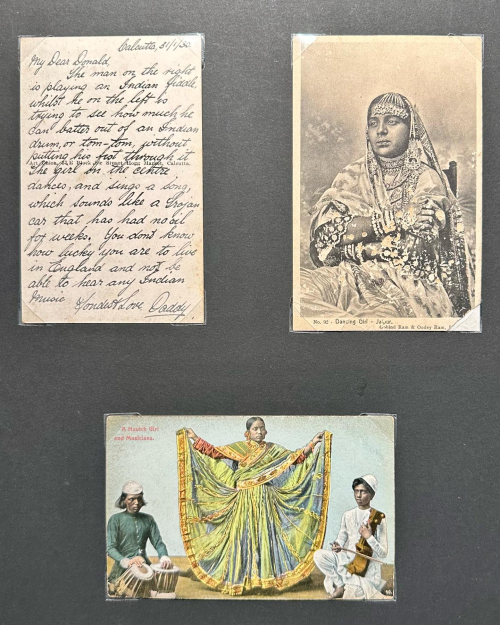 Calcutta, 31/1/30.
My Dear Donald,
The man on the right
is playing an Indian fiddle,
whilst he on the left is
trying to see how much he
can batter out of an Indian
drum, or tom-tom, without
putting his foot through it
Market, Calcutta.
The girl in the centre
dances, and sings a song,
which sounds like a Trojan
car that has had no oil
for weeks. You don't know
how lucky you are to live
in England and not be
able to hear any Indian
music. Fondest Love Daddy
Dancing Girl - Jaipur.
Gobind Ram & Oodey Ram,
A Nautch Girl
and Musicians.